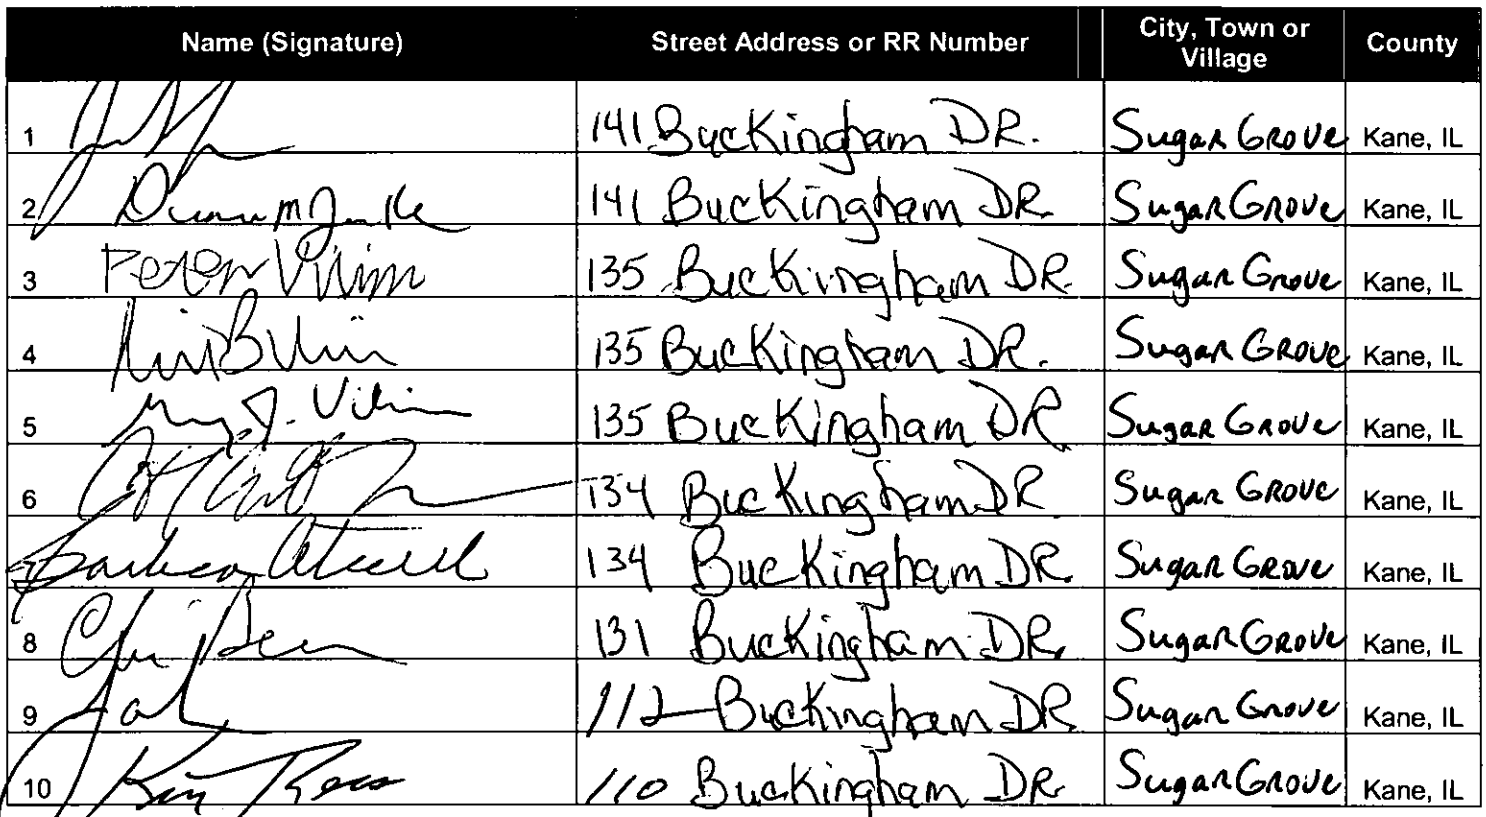 Name (Signature) Street Address or RR Number City, Town or Village County
1 141 Buckingham DR. Sugar Grove Kane, IL
2 141 Buckingham DR. Sugar Grove Kane, IL
3 Peter Vilim 135 Buckingham DR. Sugar Grove Kane, IL
4 135 Buckingham DR. Sugar Grove Kane, IL
5 J. Vilim 135 Buckingham DR Sugar Grove Kane, IL
6 134 Buckingham DR. Sugar Grove Kane, IL
Barbara Atwell 134 Buckingham DR. Sugar Grove Kane, IL
8 131 Buckingham DR. Sugar Grove Kane, IL
9 112 Buckingham DR Sugar Grove Kane, IL
10 Kim Ress 110 Buckingham DR. Sugar Grove Kane, IL